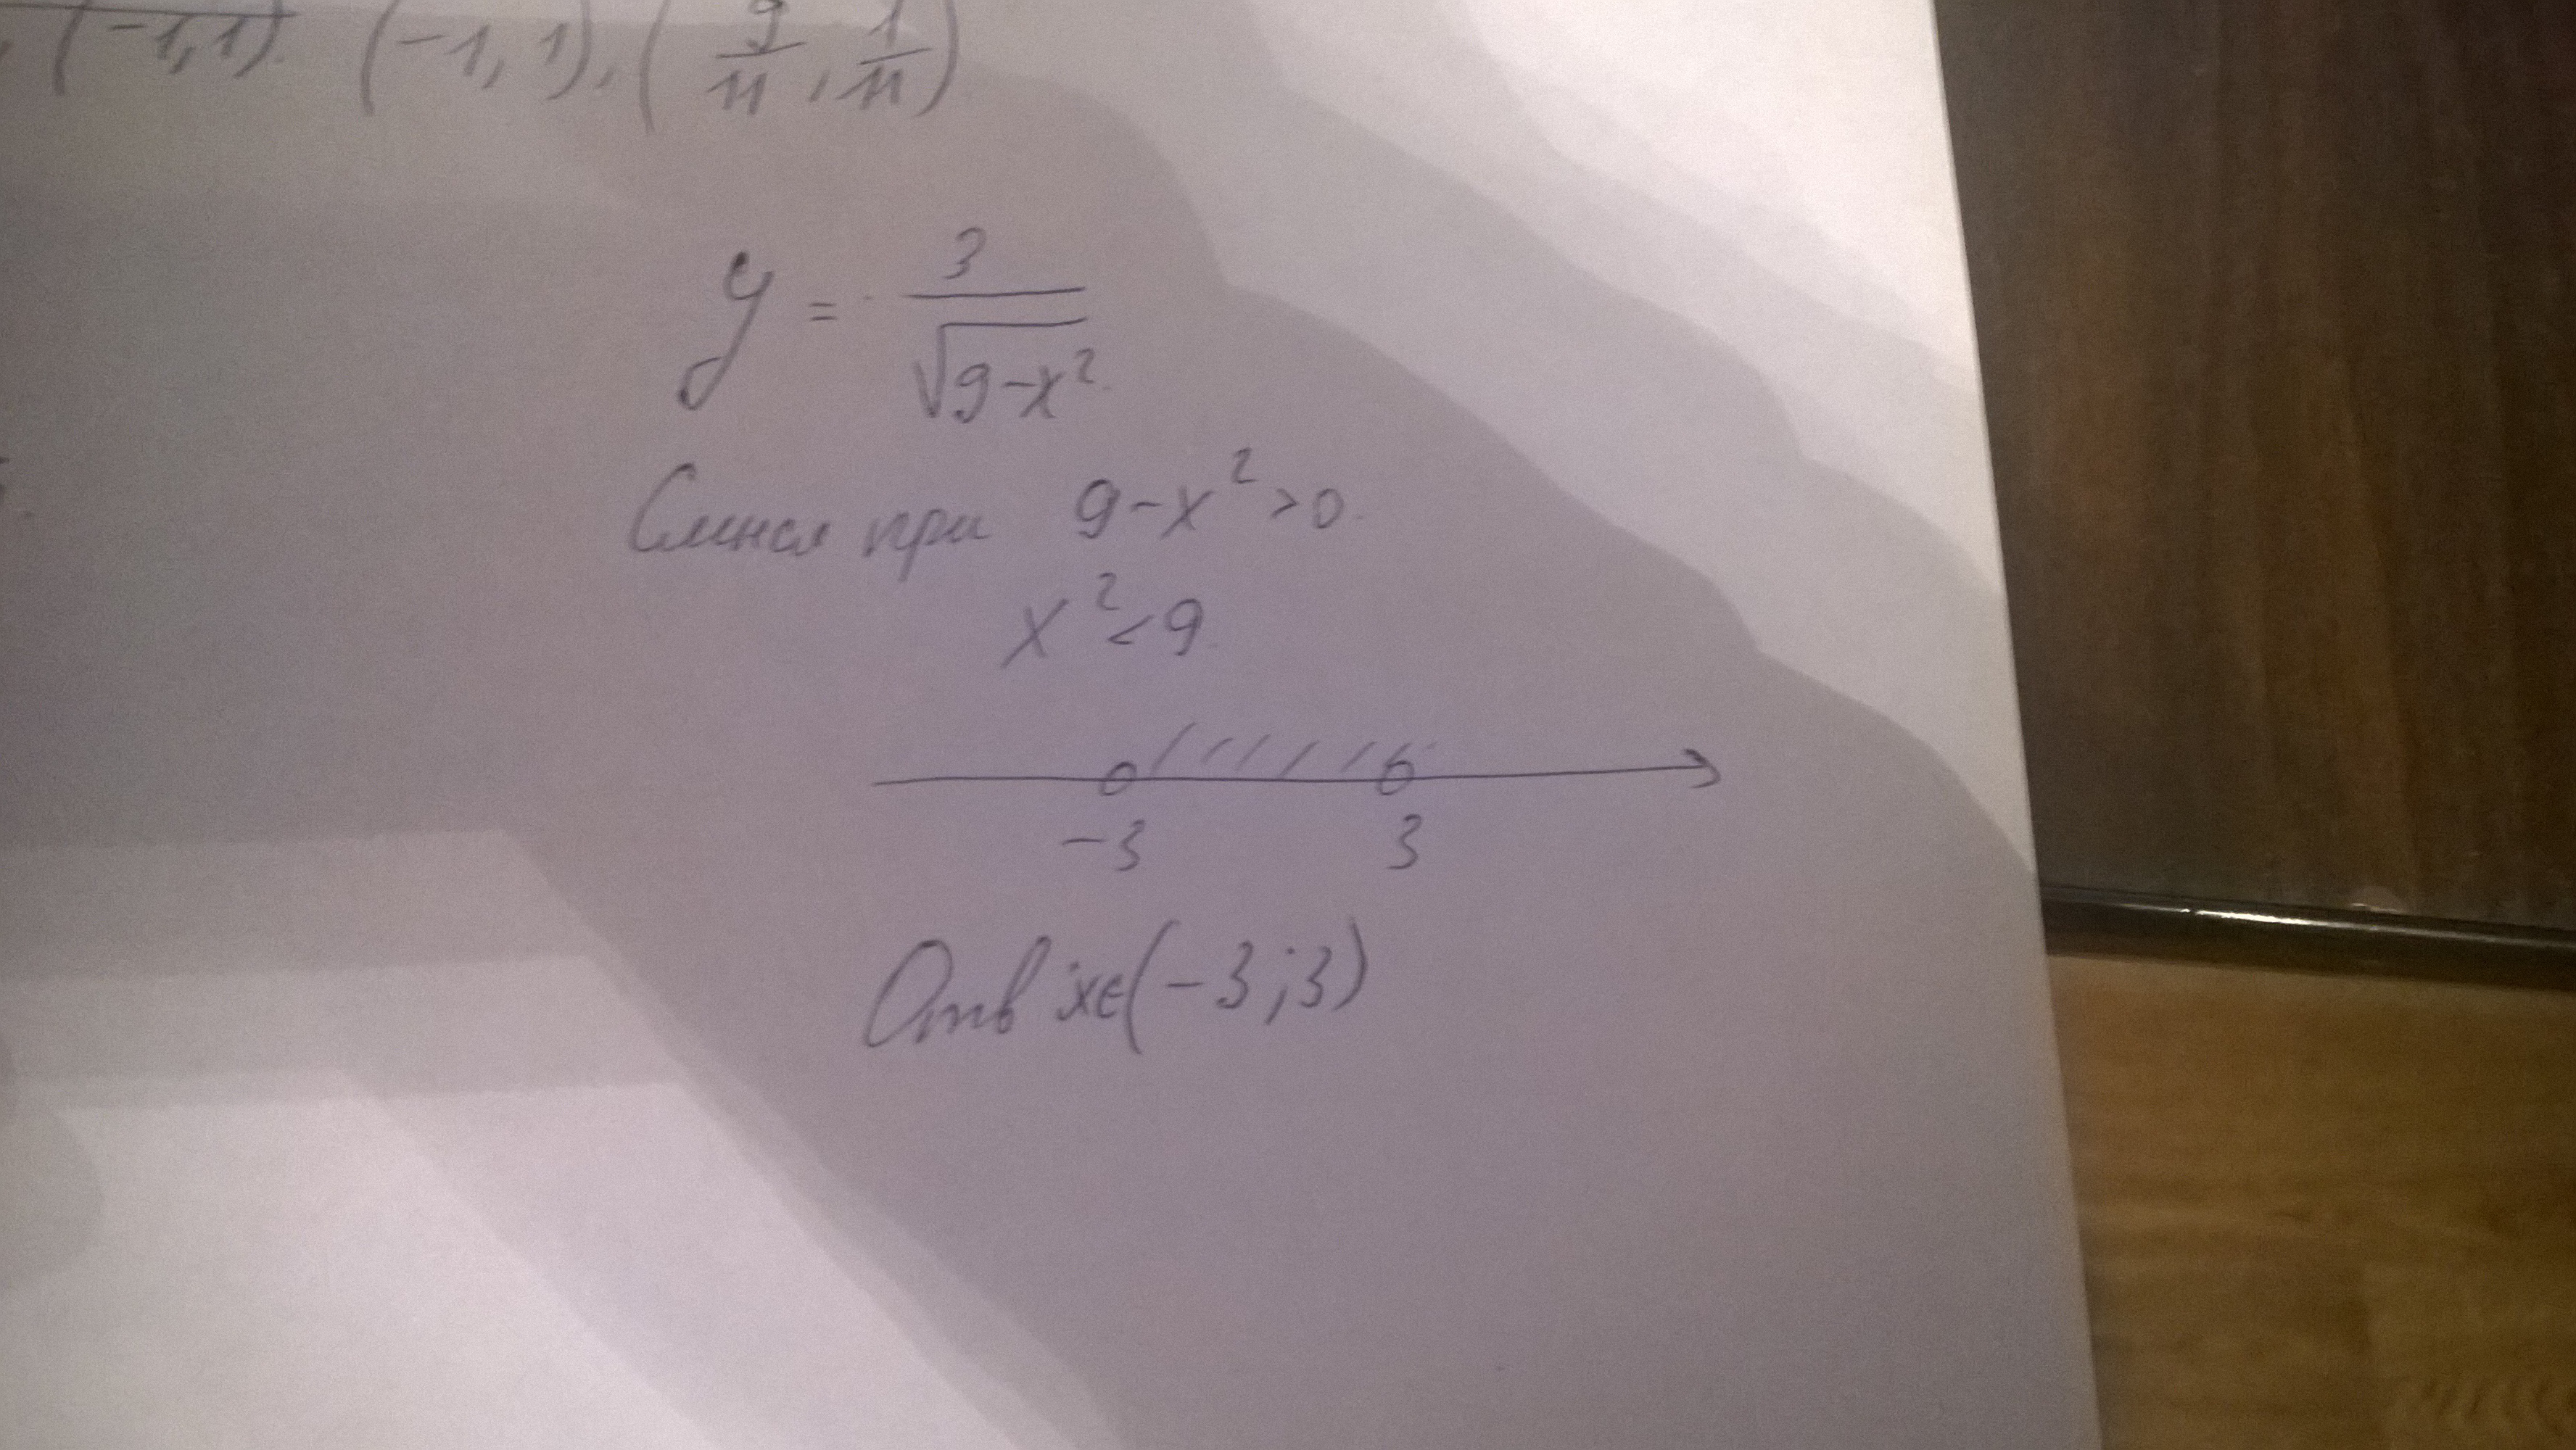 (-1,1). (-1,1),(9/11,1/11)
y = 3/√(9-x²)
Смысл при 9-x²>0
x²<9
-3 3
Отв: x∈(-3;3)